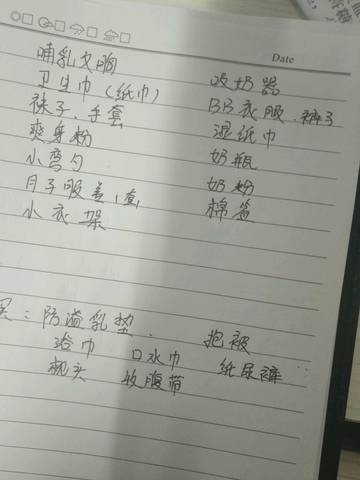 Date
哺乳文胸 吸奶器
卫生巾（纸巾） BB衣服.裤子
袜子.手套 湿纸巾
爽身粉 奶瓶
小弯勺 奶粉
月子服差1套 棉签
小衣架
买：防溢乳垫. 抱被
浴巾 口水巾 纸尿裤
枕头 收腹带